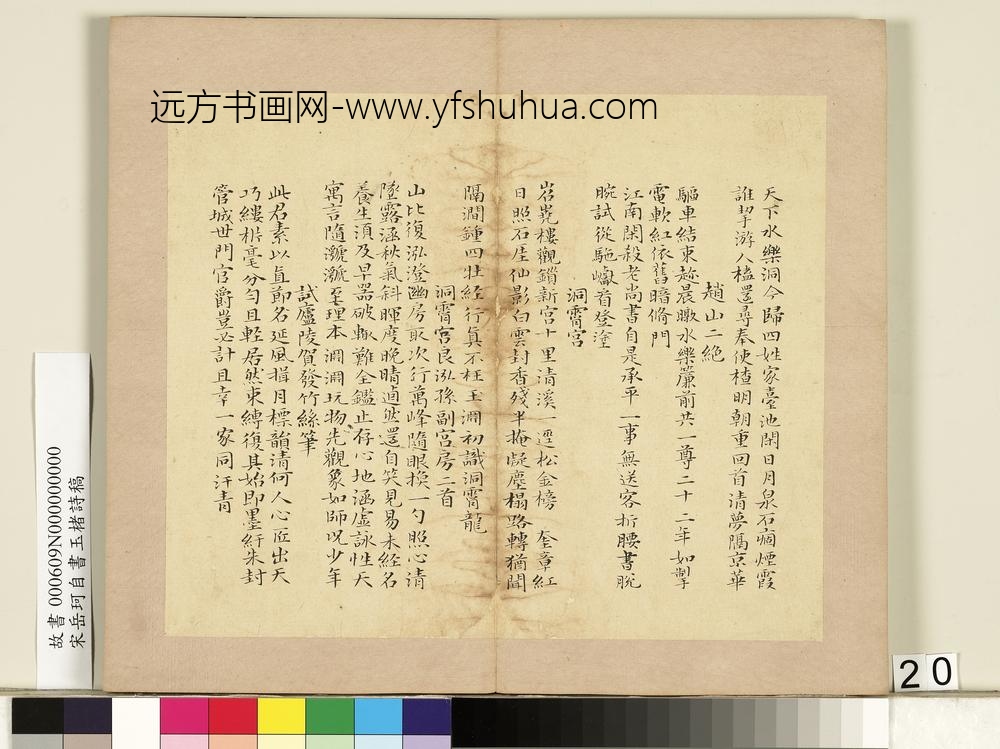 远方书画网-www.yfshuhua.com
天下水樂洞今歸四姓家臺池閑日月泉石痼煙霞
誰挈游人榼還尋奉使楂明朝重回首清夢隔京華
趙山二絶
驅車結束趂晨暾水樂簾前共一尊二十二年如掣
電軟紅依舊暗脩門
江南閑殺老尚書自是承平一事無送客折腰書脫
腕試從駞巘看登塗
洞霄宮
岧嶤樓觀鎖新宮十里清溪一逕松金榜 奎章紅
日照石厓仙影白雲封香殘半掩凝塵榻路轉猶聞
隔澗鍾四壯經行真不枉玉淵初識洞霄龍
洞霄宮良泓孫副宮房二首
山比復泓澄幽房取次行萬峰隨眼換一勺照心清
墜露涵秋氣斜暉度晚晴逌然還自笑見易未經名
養生須及早器破輒難全鑑止存心地涵虛詠性天
寓言隨瀌瀌至理本淵淵玩物先觀象如師況少年
試廬陵賀發竹絲筆
此君素以直節名延風揖月標韻清何人心匠出天
巧縷析毫分勻且輕居然束縛復其始即墨紆朱封
管城世門官爵豈必計且幸一家同汗青
故書 000609N000000000
宋岳珂自書玉楮詩稿
20